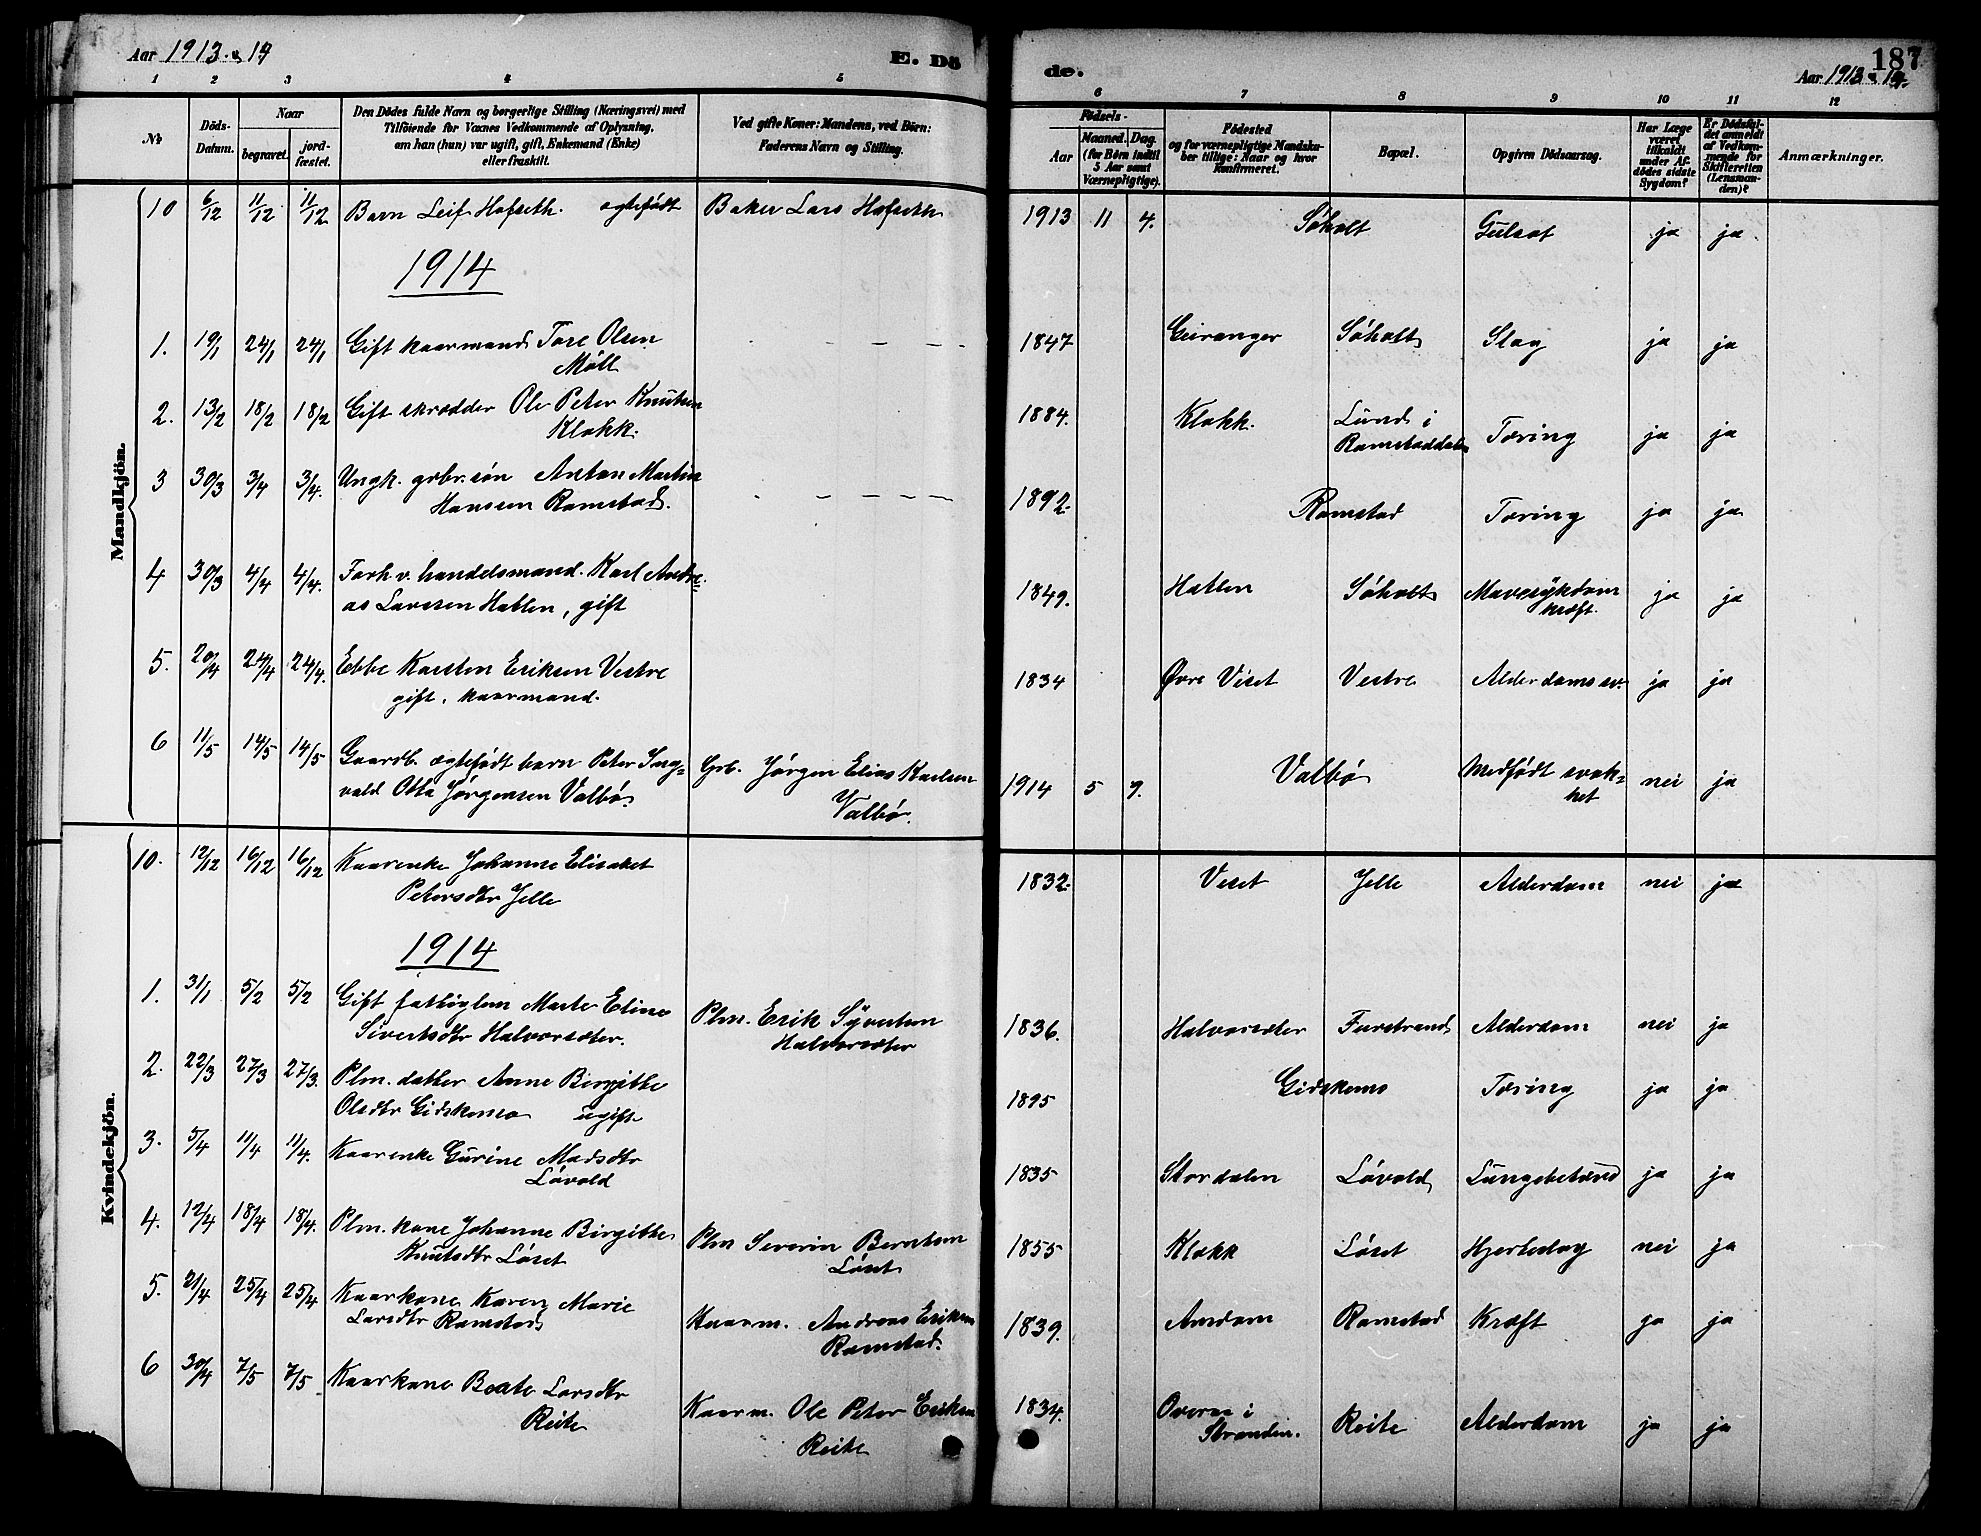 Aar 1913 & 14
E. Dö
de.
187
Aar 1913 & 14.
1 2 3 4 5
6 7 8 9 10 11 12
№
Döds-Datum.
Naar
begravet.
jord-fæstet.
Den Dödes fulde Navn og borgerlige Stilling (Næringsvei) med
Tilföiende for Voxnes Vedkommende af Oplysning,
om han (hun) var ugift, gift, Enkemand (Enke)
eller fraskilt.
Ved gifte Koner: Mandens, ved Börn:
Faderens Navn og Stilling.
Födsels-
Aar
Maaned. Dag.
(for Börn indtil
5 Aar samt
Værnepligtige).
Födested
og for værnepligtige Mandska-
ber tillige: Naar og hvor
konfirmeret.
Bopæl.
Opgiven Dödsaarsag.
Har Læge
været
tilkaldt
under Af-
dödes sidste
Sygdom?
Er Dödsfal-
det anmeldt
af Vedkom-
mende for
Skifteretten
(Lensman-
den)?
Anmærkninger.
Mandkjön.
10 6/12 11/12 11/12 Barn Leif Hofseth. ægtefødt Baker Lars Hofseth 1913 11 4. Søholt Gulsot ja ja
1914
1. 19/1 24/1 24/1 Gift kaarmand Tore Olsen
Möll
— — — — 1847 Geiranger Søholt Slag ja ja
2. 13/2 18/2 18/2 Gift skrædder Ole Peter Knutsen
Klokk.
1884. Klokk. Lund i
Ramstaddalen
Tæring ja ja
3 30/3 3/4 3/4. Ungk. grbr. søn Anton Martin
Hansen Ramstad.
— — — — 1892. Ramstad Tæring ja ja
4 30/3 4/4 4/4. Forh v. handelsmand. Karl Andre=
as Larsen Hatlen, gift
1849. Hatlen Søholt Mavesykdom
kræft.
ja ja
5. 20/4 24/4 24/4. Ebbe Karsten Eriksen Vestre
gift, kaarmand.
1834 Øvre Viset Vestre Alderdomssv. ja ja
6 11/5 14/5 14/5 Gaardb. ægtefødt barn Peter Ing=
vald Otto Jørgensen Valbø.
Grb. Jørgen Elias Karlsen
Valbø.
1914 5 9. Valbø Medfødt svak=
het
nei ja
Kvindekjön.
10. 12/12 16/12 16/12 Kaarenke Johanne Elisabet
Petersdtr Jelle
1832. Viset Jelle Alderdom nei ja
1914
1. 31/1 5/2 5/2 Gift fattiglem Marte Eline
Sivertsdtr Halvorsæter.
Plm. Erik Syvertsen
Halvorsæter
1836. Halvorsæter Furstrand Alderdom nei ja
2. 22/3 27/3 27/3. Plm. datter Anne Birgitte
Olsdtr Gidskemo ugift
1895 Gidskemo Tæring ja ja
3. 5/4 11/4 11/4. Kaarenke Gurine Madsdtr
Løvold
1835 Stordalen Løvold Lungebetænd ja ja
4. 12/4 18/4 18/4. Plm. kone Johanne Birgitte
Knutsdtr Løset
Plm Severin Berntsen
Løset
1855 Klokk Løset Hjerteslag nei ja
5. 21/4 25/4 25/4 Kaarkone Karen Marie
Larsdtr Ramstad
Kaarm. Andreas Eriksen
Ramstad.
1839. Amdam Ramstad Kræft ja ja
6 30/4 7/5 7/5 Kaarkone Beate Larsdtr
Reite
Kaarm. Ole Peter Eriksen
Reite
1834. Overaa i
Stranden.
Reite Alderdom ja ja